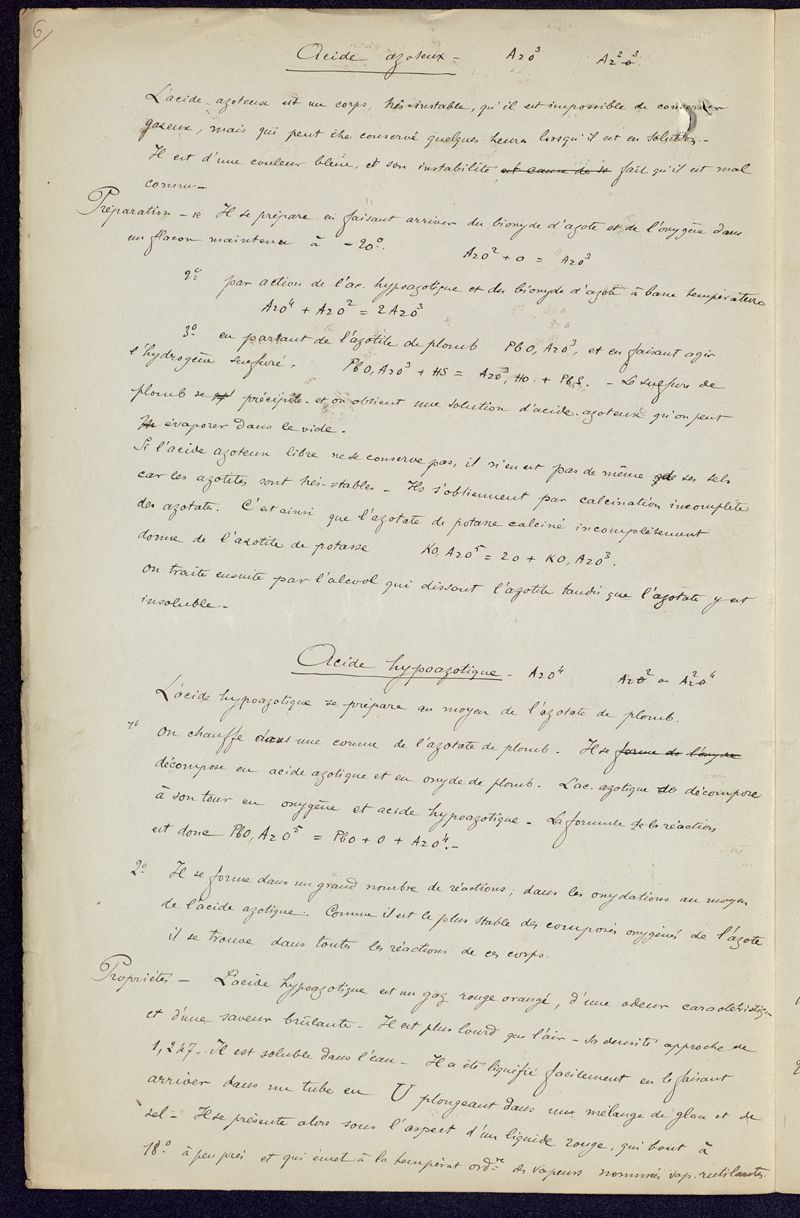 6/
Acide azoteux = AzO³ Az²O³
L'acide azoteux est un corps, très-instable, qu'il est impossible de conserver
gazeux, mais qui peut être conservé quelques heures lorsqu'il est en solution.-
Il est d'une couleur bleue, et son instabilité est cause de sa fait qu'il est mal
connu.-
Préparation - 1º Il se prépare en faisant arriver du bioxyde d'azote et de l'oxygène dans
un flacon maintenu à -20º. AzO² + O = AzO³
2º par action de l'ac. hypoazotique et du bioxyde d'azote à basse température
AzO⁴ + AzO² = 2AzO³
3º en partant de l'azotite de plomb PbO, AzO³, et en faisant agir
l'hydrogène sulfuré. PbO, AzO³ + HS = AzO³, HO + PbS. - Le sulfure de
plomb se précipite et on obtient une solution d'acide azoteux qu'on peut
évaporer dans le vide.
Si l'acide azoteux libre ne se conserve pas, il n'en est pas de même de ses sels
car les azotites sont très-stables - Ils s'obtiennent par calcination incomplète
des azotats. C'est ainsi que l'azotate de potasse calciné incomplètement
donne de l'azotite de potasse KO, AzO⁵ = 2O + KO, AzO³.
On traite ensuite par l'alcool qui dissout l'azotite tandis que l'azotate y est
insoluble.-
Acide hypoazotique - AzO⁴ AzO² ou Az²O⁴
L'acide hypoazotique se prépare au moyen de l'azotate de plomb.
1º On chauffe dans une cornue de l'azotate de plomb. Il se forme de l'oxyde
décompose en acide azotique et en oxyde de plomb. L'ac. azotique se décompose
à son tour en oxygène et acide hypoazotique - La formule de la réaction
est donc PbO, AzO⁵ = PbO + O + AzO⁴.-
2º Il se forme dans un grand nombre de réactions; dans les oxydations au moyen
de l'acide azotique. Comme il est le plus stable des composés oxygénés de l'azote
il se trouve dans toutes les réactions de ces corps.
Propriétés - L'acide hypoazotique est un gaz rouge orangé, d'une odeur caractéristique
et d'une saveur brûlante. Il est plus lourd que l'air - Sa densité approche de
1,247. Il est soluble dans l'eau - Il a été liquéfié facilement en le faisant
arriver dans un tube en U plongeant dans un mélange de glace et de
sel - Il se présente alors sous l'aspect d'un liquide rouge, qui bout à
18º à peu près et qui émet à la températ ord.re des vapeurs nommées vap. rutilantes.